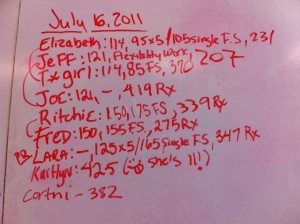 July 16, 2011
Elizabeth: 114, 95x5/105 single F.S, 231
Jeff: 121, Flexibility Work, 207
Txgirl: 114, 85 FS, 370
Joe: 121, -, 419 Rx
Ritchie: 150, 175 FS, 339 Rx
Fred: 150, 155 FS, 275 Rx
Lara: -, 125x5/165 Single FS, 347 Rx
Kaitlyn: 425 ( she's 11!)
Cortni - 382